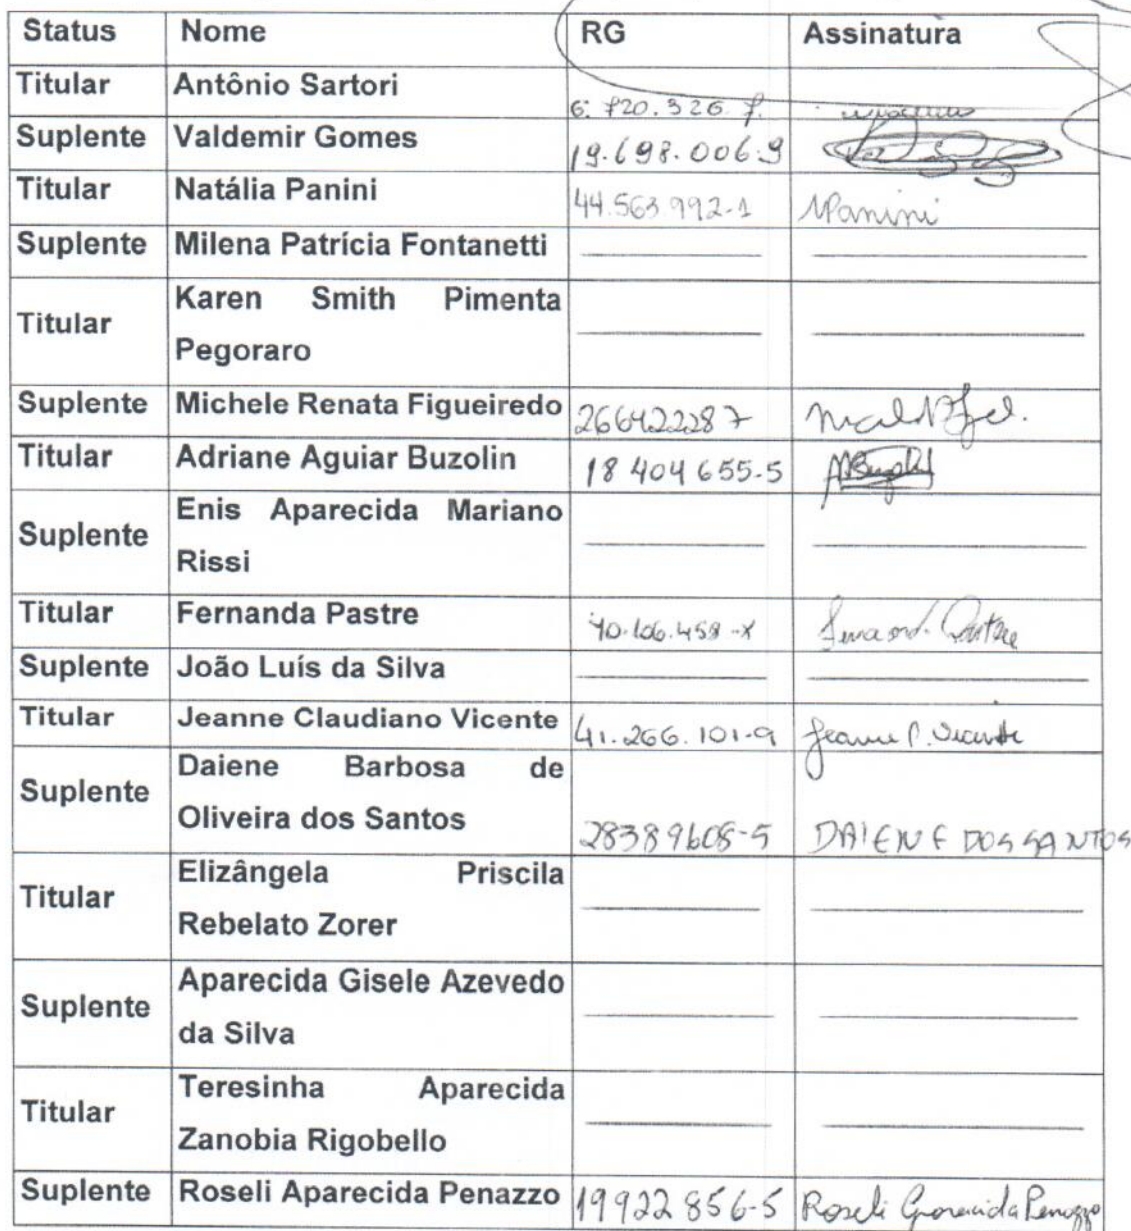 Status Nome RG Assinatura
Titular Antônio Sartori
Suplente Valdemir Gomes 19.698.006.9
Titular Natália Panini 44.563.992-1 NPanini
Suplente Milena Patrícia Fontanetti
Titular Karen Smith Pimenta
Pegoraro
Suplente Michele Renata Figueiredo 266422287
Titular Adriane Aguiar Buzolin 18 404 655-5
Suplente Enis Aparecida Mariano
Rissi
Titular Fernanda Pastre
Suplente João Luís da Silva
Titular Jeanne Claudiano Vicente 41.266.101-9 Jeanne C. Vicente
Suplente Daiene Barbosa de
Oliveira dos Santos 28389608-5 DAIENE DOS SANTOS
Titular Elizângela Priscila
Rebelato Zorer
Suplente Aparecida Gisele Azevedo
da Silva
Titular Teresinha Aparecida
Zanobia Rigobello
Suplente Roseli Aparecida Penazzo 19922 856-5 Roseli Aparecida Penazzo